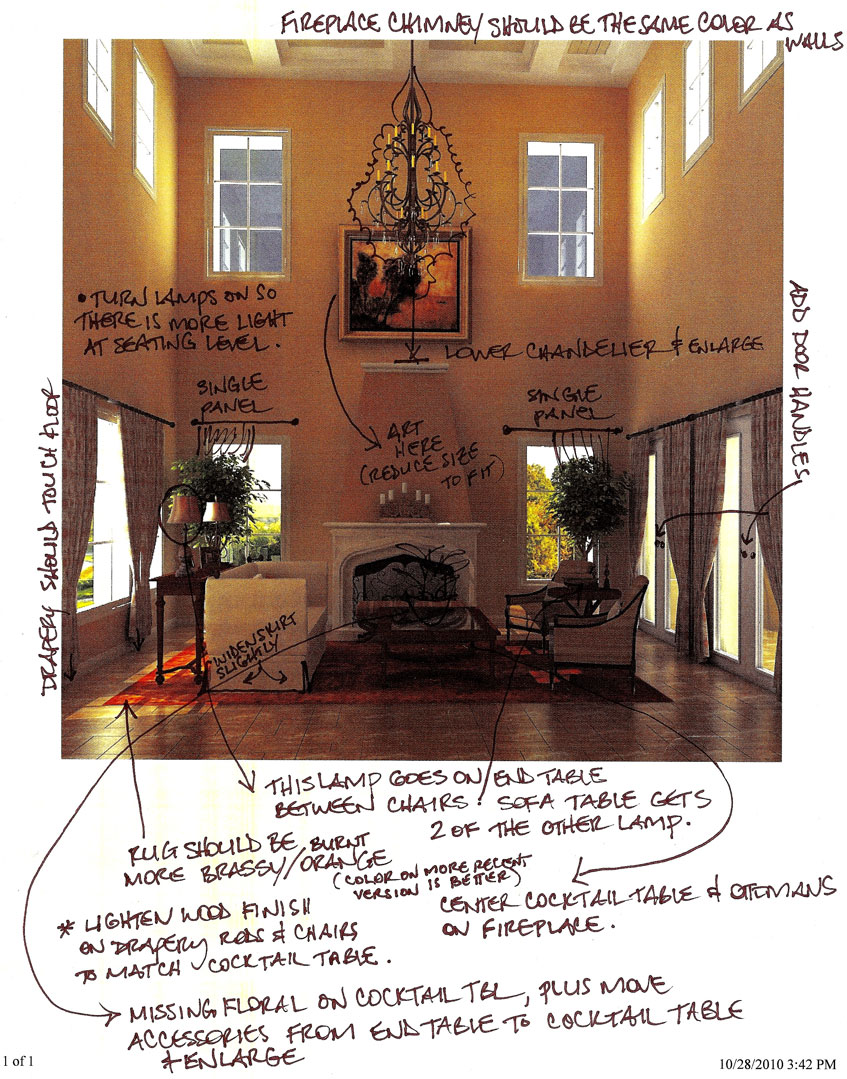 FIREPLACE CHIMNEY SHOULD BE THE SAME COLOR AS
WALLS
• TURN LAMPS ON SO
THERE IS MORE LIGHT
AT SEATING LEVEL.
LOWER CHANDELIER & ENLARGE
ADD DOOR HANDLES
SINGLE
PANEL
SINGLE
PANEL
DRAPERY SHOULD TOUCH FLOOR
ART
HERE
(REDUCE SIZE
TO FIT)
WIDEN SKIRT
SLIGHTLY
THIS LAMP GOES ON END TABLE
BETWEEN CHAIRS. SOFA TABLE GETS
2 OF THE OTHER LAMP.
RUG SHOULD BE
MORE BRASSY/BURNT ORANGE
(COLOR ON MORE RECENT
VERSION IS BETTER)
CENTER COCKTAIL TABLE & OTTOMANS
ON FIREPLACE.
* LIGHTEN WOOD FINISH
ON DRAPERY RODS & CHAIRS
TO MATCH COCKTAIL TABLE.
MISSING FLORAL ON COCKTAIL TBL, PLUS MOVE
ACCESSORIES FROM END TABLE TO COCKTAIL TABLE
& ENLARGE
1 of 1
10/28/2010 3:42 PM